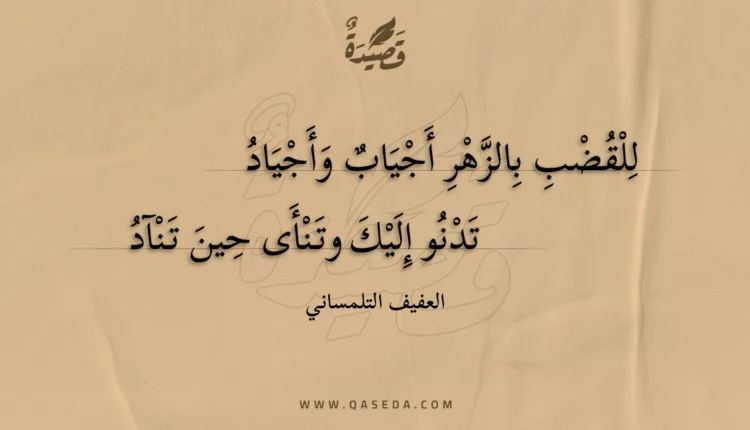 قَصِيدَةٌ
لِلْقُضْبِ بِالزَّهْرِ أَجْيَابٌ وَأَجْيَادُ
تَدْنُو إِلَيْكَ وتَنْأَى حِينَ تَنْآدُ
العفيف التلمساني
WWW.QASEDA.COM